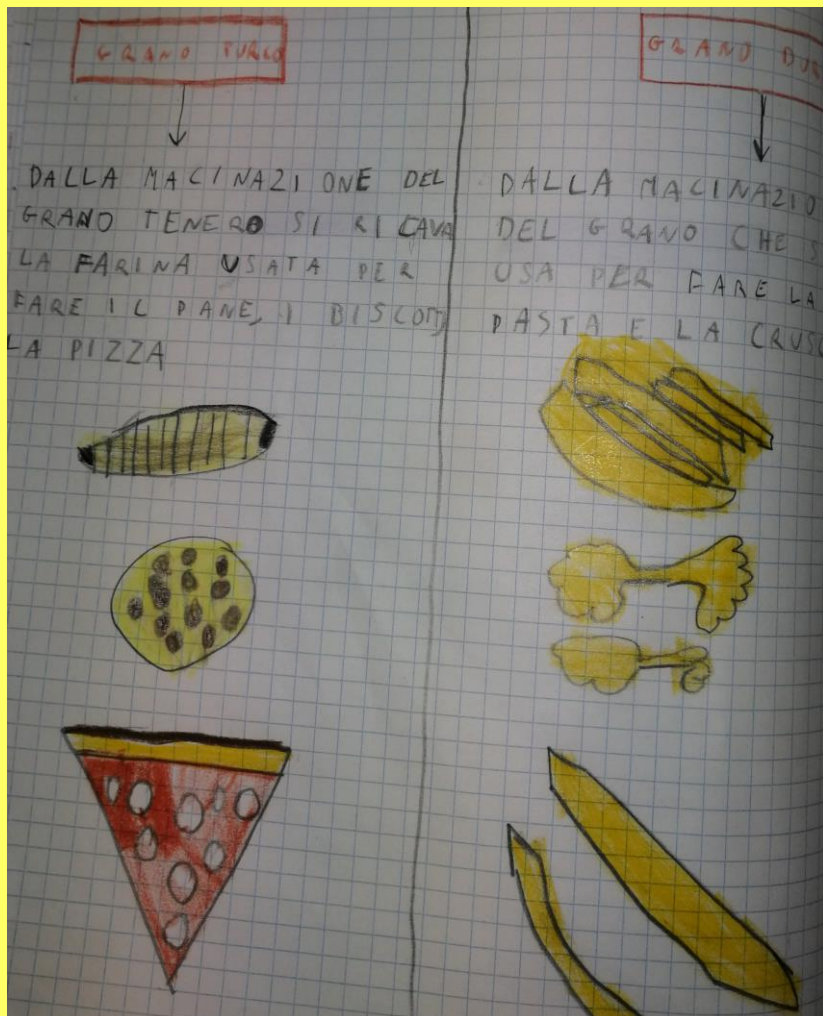 GRANO TURCO
DALLA MACINAZIONE DEL
GRANO TENERO SI RICAVA
LA FARINA USATA PER
FARE IL PANE, I BISCOTTI
LA PIZZA
GRANO DUR
DALLA MACINAZIO
DEL GRANO CHE S
USA PER FARE LA
PASTA E LA CRUSC